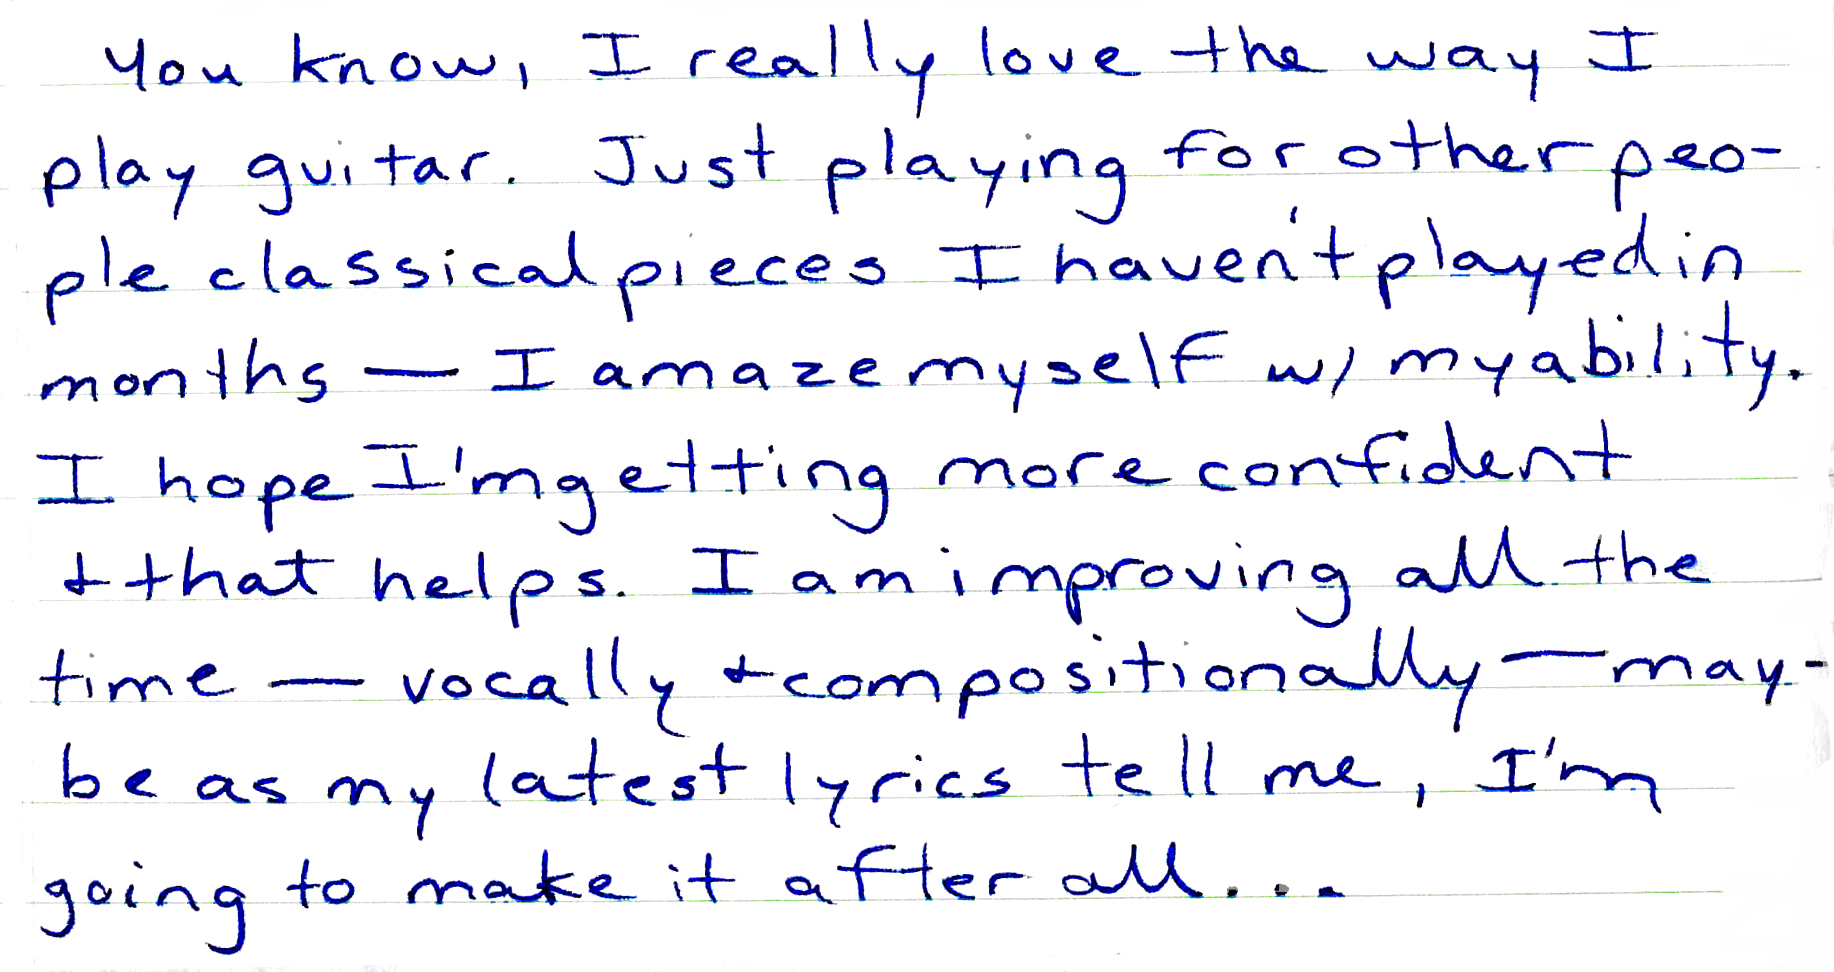 You know, I really love the way I
play guitar. Just playing for other peo-
ple classical pieces I haven't played in
months — I amaze myself w/ my ability.
I hope I'm getting more confident
& that helps. I am improving all the
time — vocally & compositionally — may-
be as my latest lyrics tell me, I'm
going to make it after all...